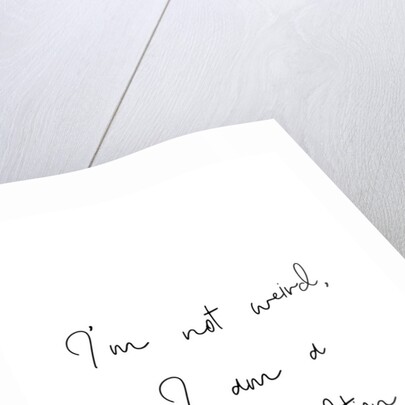 I'm not weird,
I am a